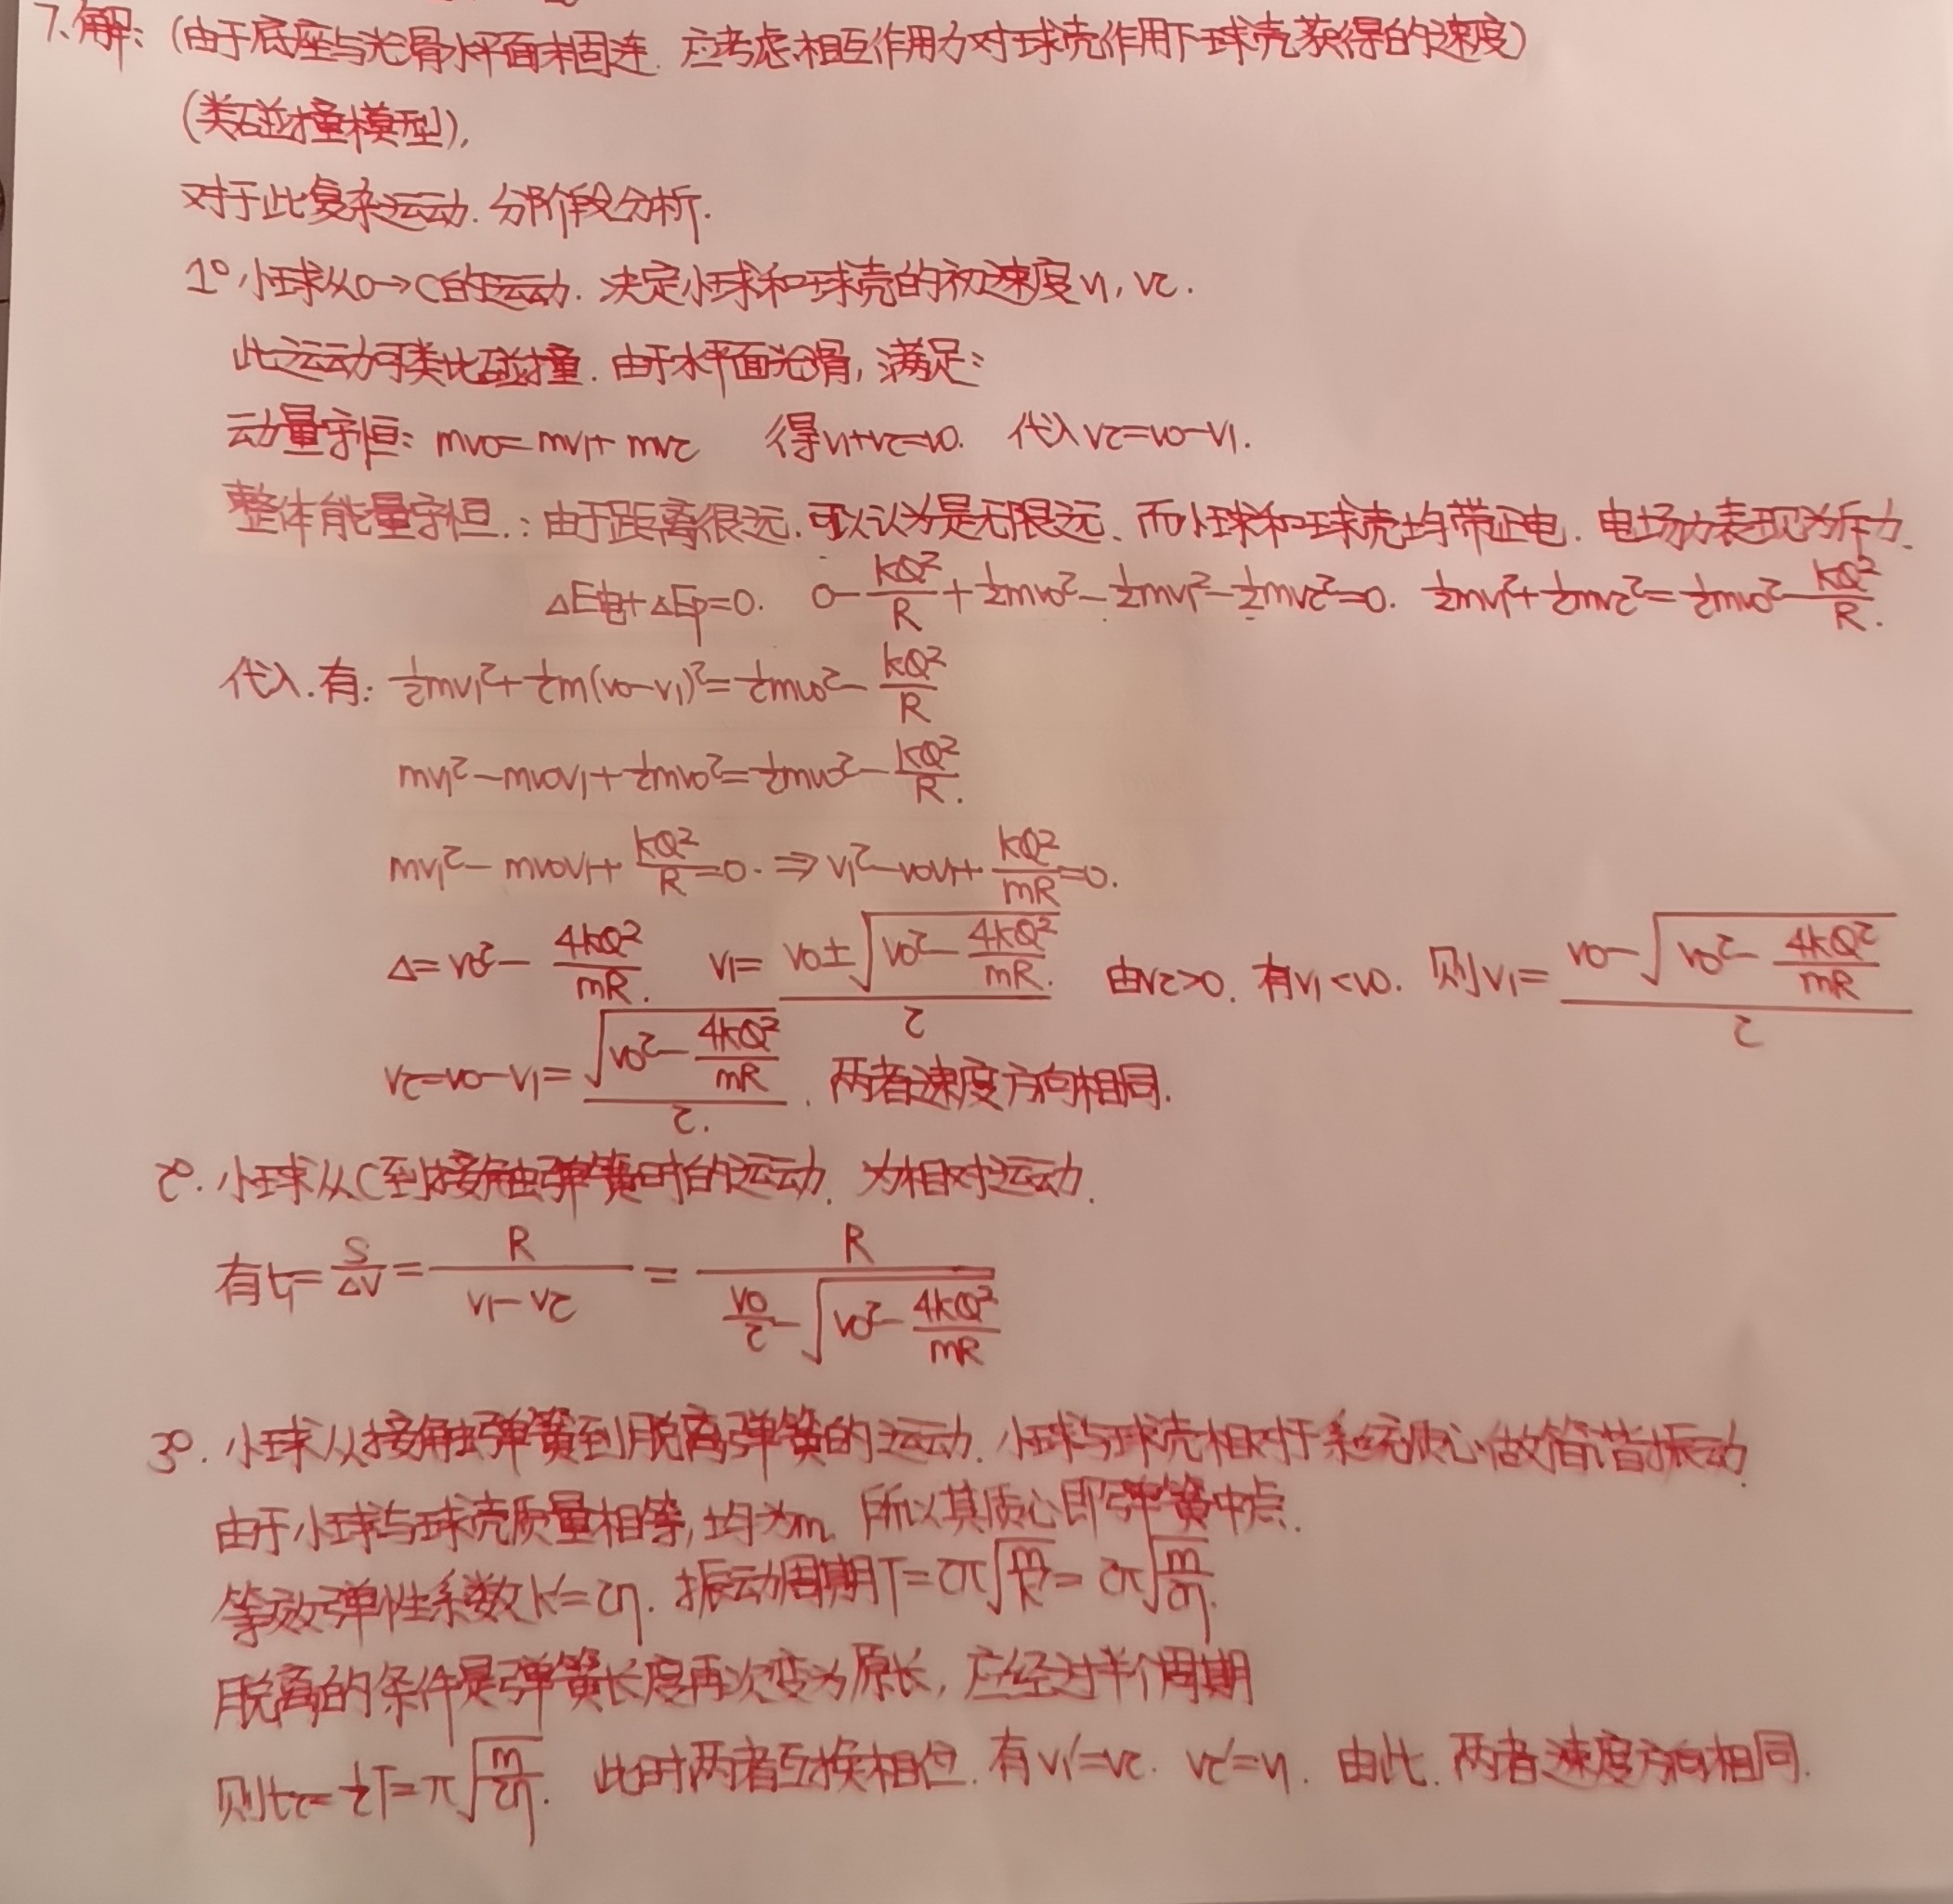 7.解:(由于底座与光滑水平面未固连.应考虑相互作用力对球壳作用下球壳获得的速度)
(类碰撞模型),
对于此复杂运动.分阶段分析.
1°小球从O→C的运动.决定小球和球壳的初速度v1,v2.
此运动可类比碰撞.由于水平面光滑,满足:
动量守恒:mv0=mv1+mv2 得v1+v2=v0. 代入v2=v0-v1.
整体能量守恒.:由于距离很远.可以认为是无限远、而小球和球壳均带正电.电场力表现为斥力.
ΔE电+ΔEp=0. 0-kQ²/R+½mv0²-½mv1²-½mv2²=0. ½mv1²+½mv2²=½mv0²-kQ²/R.
代入.有:½mv1²+½m(v0-v1)²=½mv0²-kQ²/R
mv1²-mv0v1+½mv0²=½mv0²-kQ²/R.
mv1²-mv0v1+kQ²/R=0.⇒v1²-v0v1+kQ²/mR=0.
Δ=v0²-4kQ²/mR. v1=(v0±√(v0²-4kQ²/mR.))/2 由v2>0.有v1<v0. 则v1=(v0-√(v0²-4kQ²/mR))/2
v2=v0-v1=√(v0²-4kQ²/mR)/2. .两者速度方向相同.
2°.小球从C到接触弹簧时的运动.为相对运动.
有t1=S/Δv=R/(v1-v2)=R/(v0/2-√(v0²-4kQ²/mR))
3°.小球从接触弹簧到脱离弹簧的运动.小球与球壳相对于系统质心做简谐振动
由于小球与球壳质量相等,均为m.所以其质心即弹簧中点.
等效弹性系数k'=2η.振动周期T=2π√(m/k')=2π√(m/2η).
脱离的条件是弹簧长度再次变为原长,应经过半个周期
则t2=½T=π√(m/2η). 此时两者互换相位.有v1'=v2. v2'=v1. 由此.两者速度方向相同.